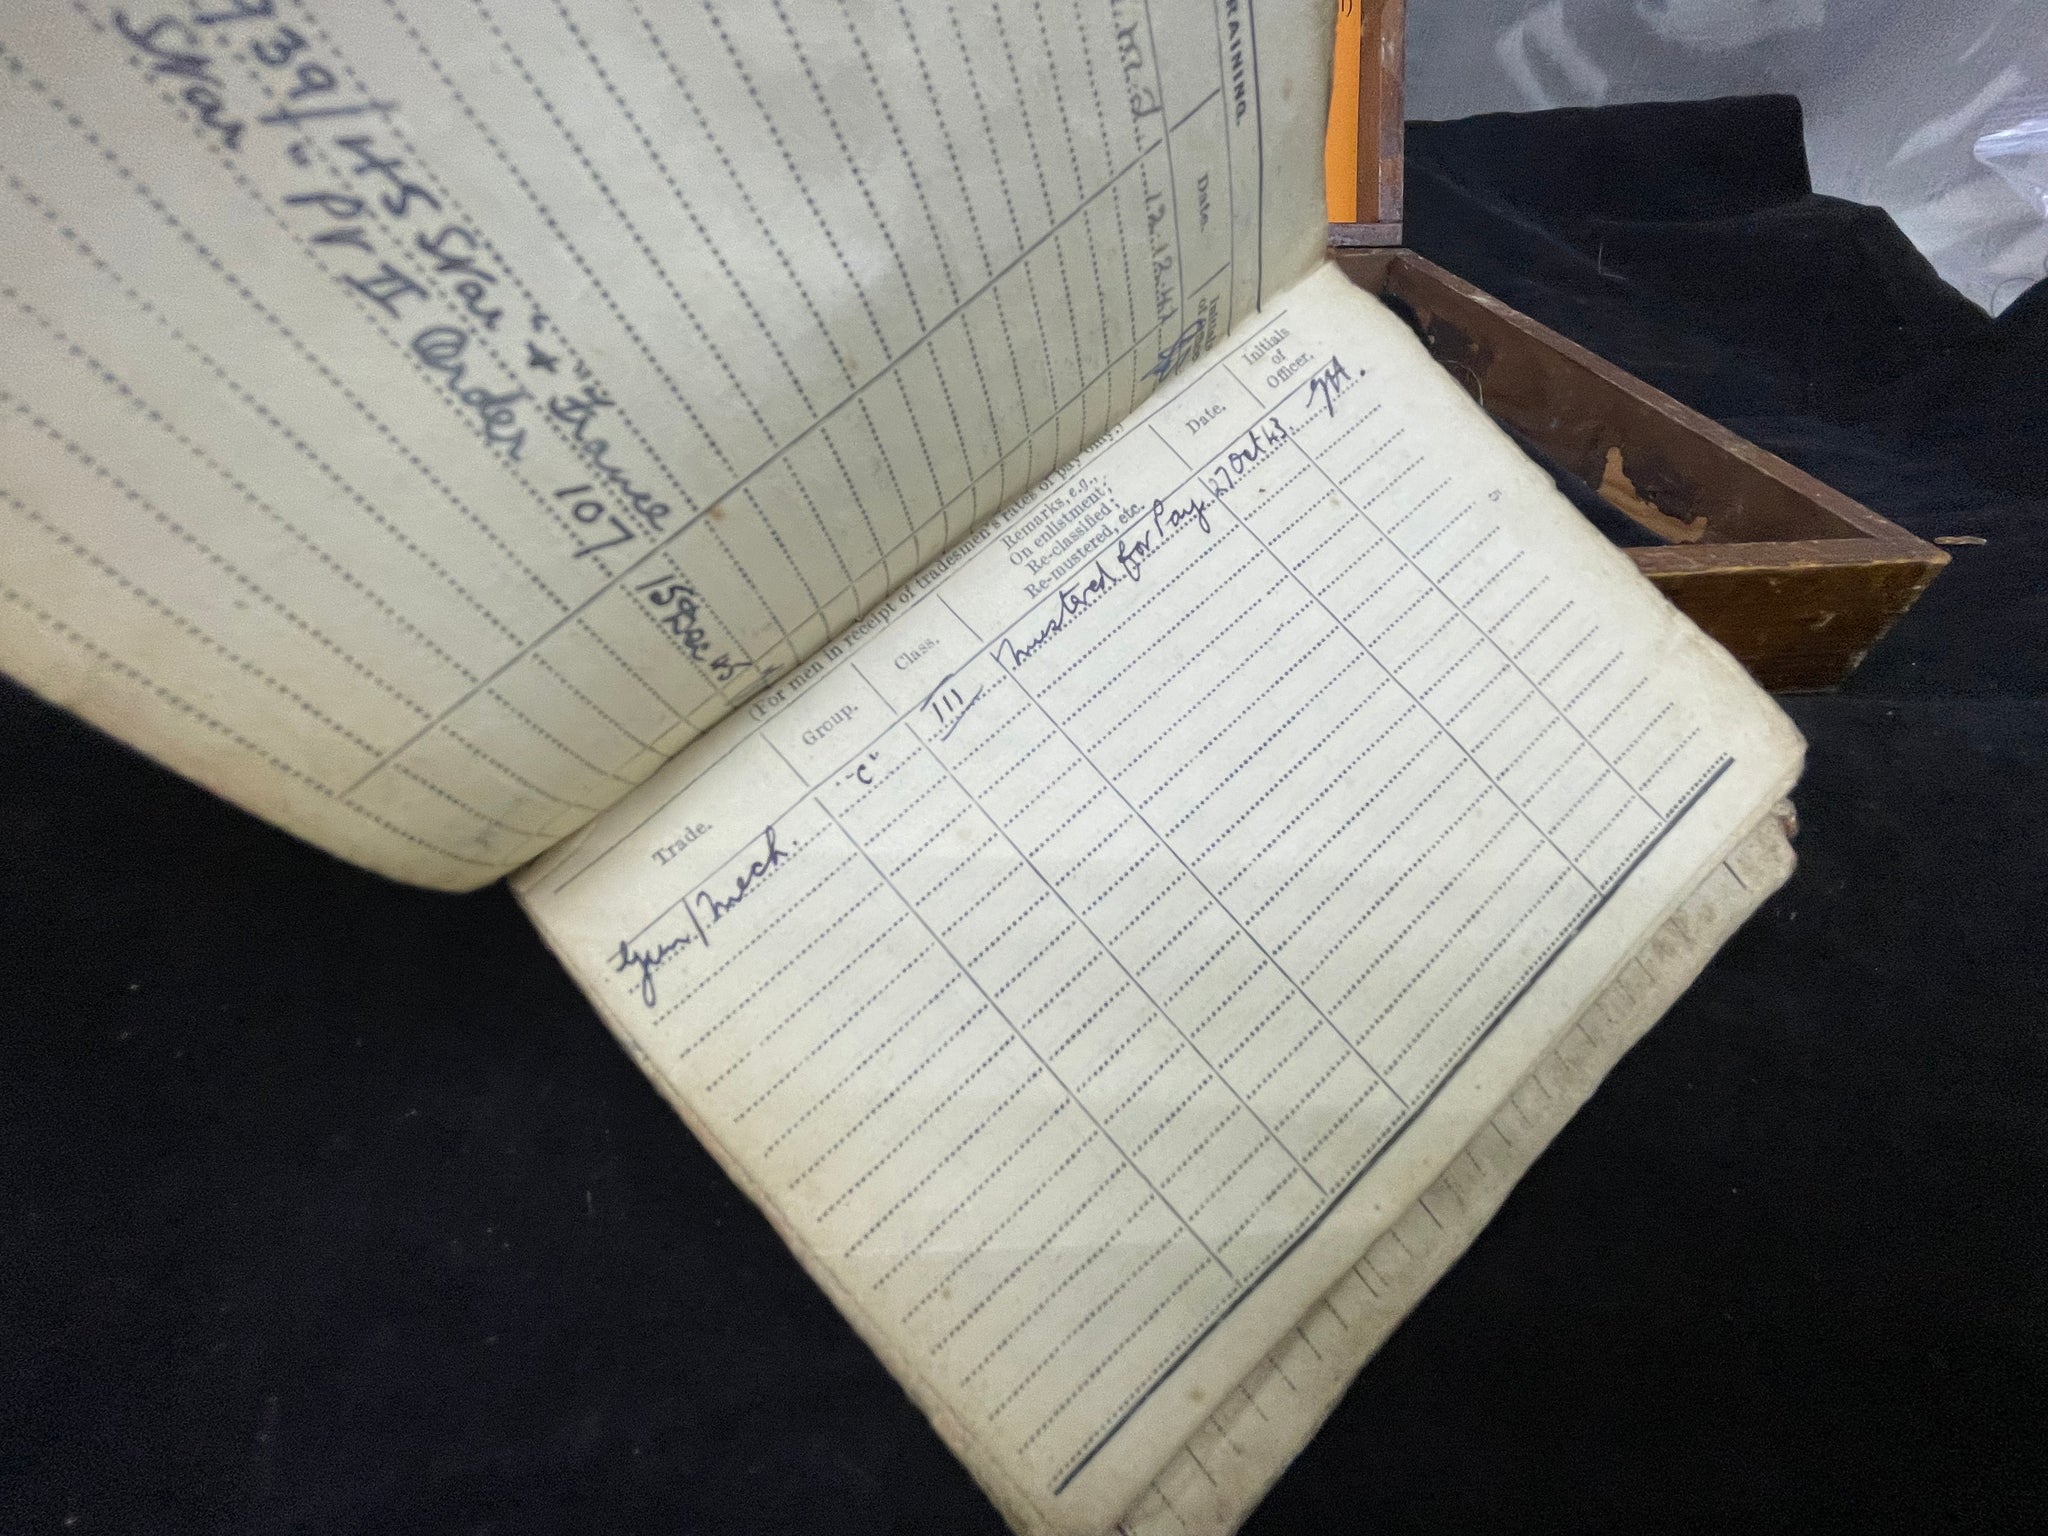 RAINING.
Date.
Initials
of
12.12.42
739/45 Star " & "France
Star" Pt II Order 107
15 Dec 45
(For men in receipt of tradesmen's rates of pay only.)
Trade.
Group.
Class.
Remarks, e.g.,
On enlistment;
Re-classified;
Re-mustered, etc.
Date.
Initials
of
Officer.
Gun/Mech.
"C"
III
Mustered for Pay
27 Oct 43.